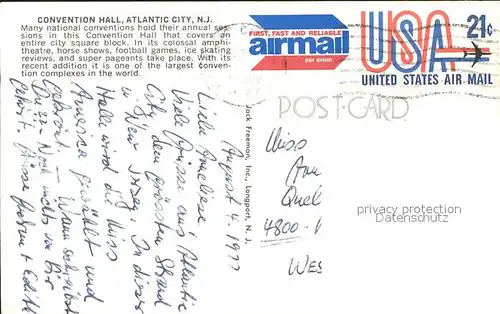 CONVENTION HALL, ATLANTIC CITY, N.J.
Many national conventions hold their annual ses-
sions in this Convention Hall that covers an
entire city square block. In its colossal amphi-
theatre, horse shows, football games, ice skating
reviews, and super pageants take place. With its
recent addition it is one of the largest conven-
tion complexes in the world.
FIRST, FAST AND RELIABLE
airmail
par avion
USA 21c
UNITED STATES AIR MAIL
POST CARD
Jack Freeman, Inc., Longport, N.J.
August 4. 1977
Liebe Anneliese
Viele Grüsse aus Atlantic
City dem grössten Strand
in New Jersey. In dieser
Halle wird die Miss
America gewählt und
gekrönt. – Wann schreibst
Du
Noch nichts von Dir
gehört. Grüsse
+ Edith
Miss
4800-
WES
privacy protection
Datenschutz